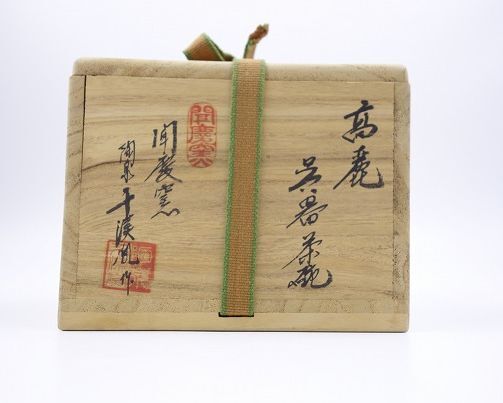 高麗
呉器茶碗
聞慶窯
聞慶窯
陶泉 千漢鳳 作